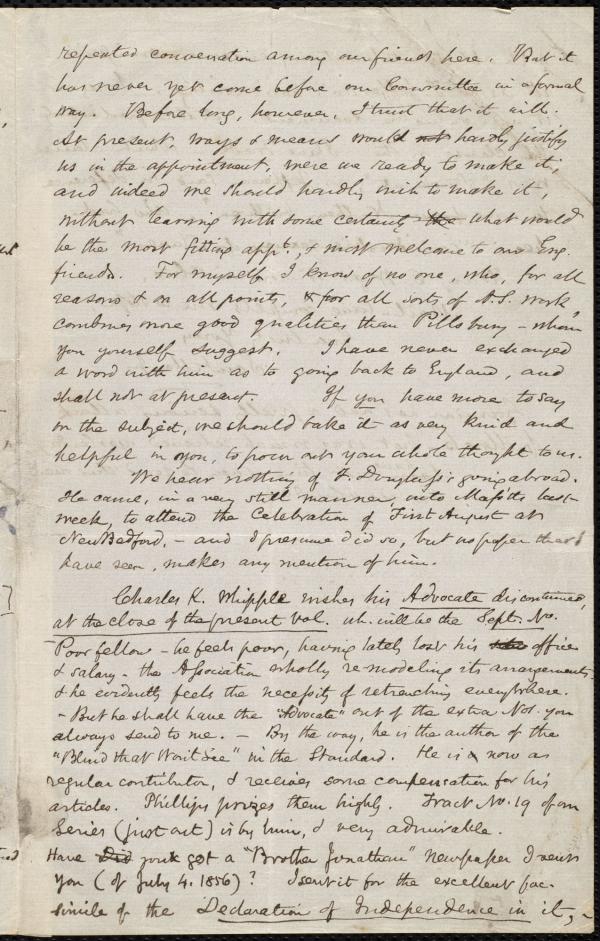 repeated conversation among our friends here. But it
has never yet come before our Committee in a formal
way. Before long, however, I trust that it will.
At present, ways & means would not hardly justify
us in the appointment, were we ready to make it;
and indeed we should hardly wish to make it,
without learning with some certainty the what would
be the most fitting appt., & most welcome to our Eng.
friends. For myself I know of no one, who, for all
reasons & on all points, & for all sorts of A.S. work,
combines more good qualities than Pillsbury - whom
you yourself suggest. I have never exchanged
a word with him as to going back to England, and
shall not at present. If you have more to say
on the subject, we should take it as very kind and
helpful in you, to pour out your whole thought to us.
We hear nothing of F. Douglass's going abroad.
He came, in a very still manner, into Massts last
week, to attend the Celebration of First August at
New Bedford, - and I presume did so, but no paper that I
have seen, makes any mention of him.
Charles K. Whipple wishes his Advocate discontinued,
at the close of the present vol. wh. will be the Sept. No.
Poor fellow - he feels poor, having lately lost his office
& salary - the Association wholly re-modeling its arrangements.
& he evidently feels the necessity of retrenching everywhere.
- But he shall have the "Advocate" out of the extra Nos. you
always send to me. - By the way, he is the author of the
"Blind that Won't See" in the Standard. He is now a
regular contributor, & receives some compensation for his
articles. Phillips prizes them highly. Tract No. 19 of our
Series (just out) is by him, & very admirable.
Have Did you got a "Brother Jonathan" newspaper I sent
you (of July 4. 1856)? I sent it for the excellent fac-
simile of the Declaration of Independence in it, -